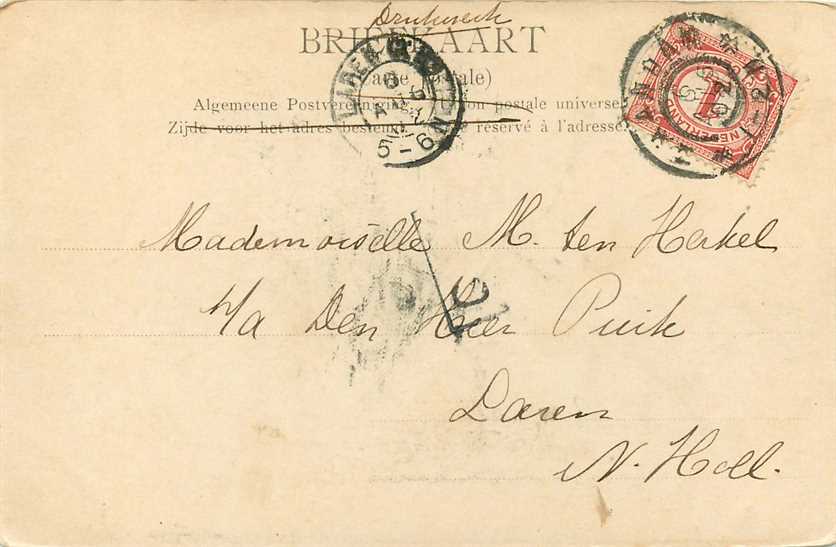 Drukwerk
BRIEFKAART
(Carte postale)
Algemeene Postvereeniging. Union postale universelle
Zijde voor het adres bestemd. Côté réservé à l'adresse.
LAREN
5-6N
1
NEDERLAND
Mademoiselle M. ten Herkel
p/a Den Heer Puik
Laren
N. Holl.